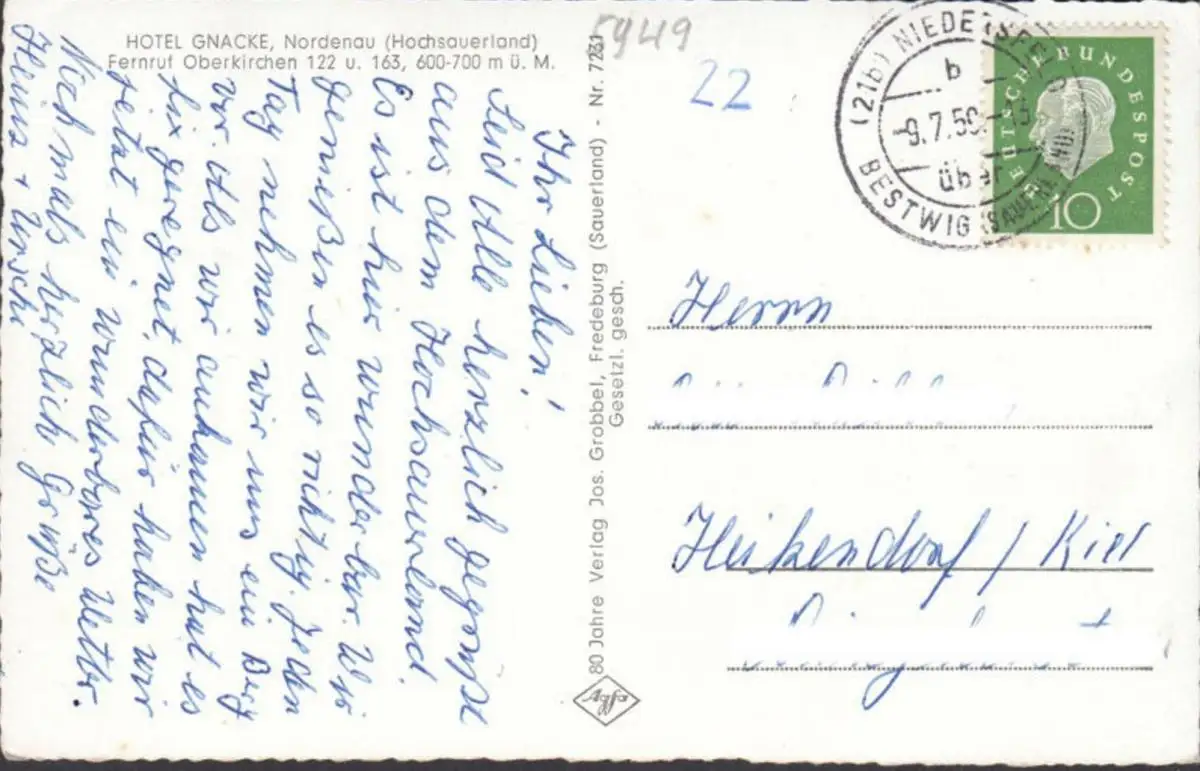 HOTEL GNACKE, Nordenau (Hochsauerland)
Fernruf Oberkirchen 122 u. 163, 600-700 m ü. M.
Ihr Lieben!
Seid Alle herzlich gegrüßt
aus dem Hochsauerland.
Es ist hier wunderbar. Wir
genießen es so richtig. Jeden
Tag nehmen wir uns ein Berg
vor. Als wir ankamen hat es
fix geregnet, dafür haben wir
jetzt ein wunderbares Wetter.
Nochmals herzliche Grüße
Heinz + Uschi
80 Jahre Verlag Jos. Grobbel, Fredeburg (Sauerland) - Nr. 7261
Gesetzl. gesch.
Agfa
5949
22
(21b) NIEDERSFELD
b
-9.7.59.-15
über
BESTWIG (SAUERLAND)
DEUTSCHE BUNDESPOST
10
Herrn
Heikendorf / Kiel